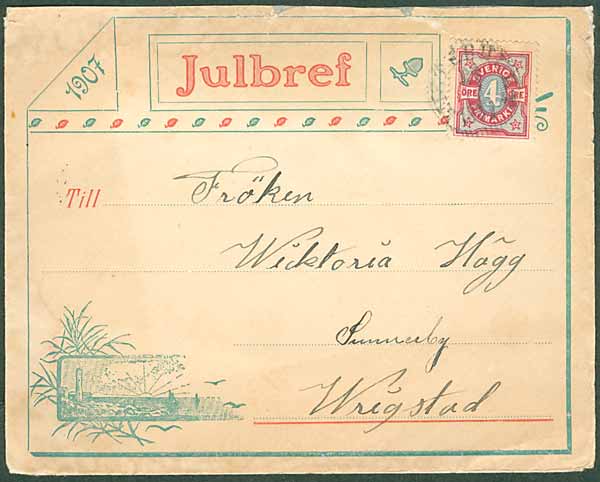 1907
Julbref
SVERIGE
ÖRE 4 ÖRE
FRIMÄRKE
Till Fröken
Wicktoria Hägg
Sunnerby
Wrigstad